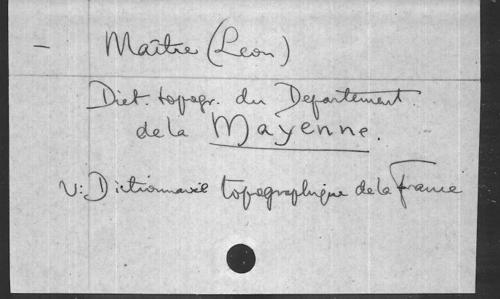 — Maître (Léon)
Dict. topogr. du Département
de la Mayenne.
V: Dictionnaire topographique de la France